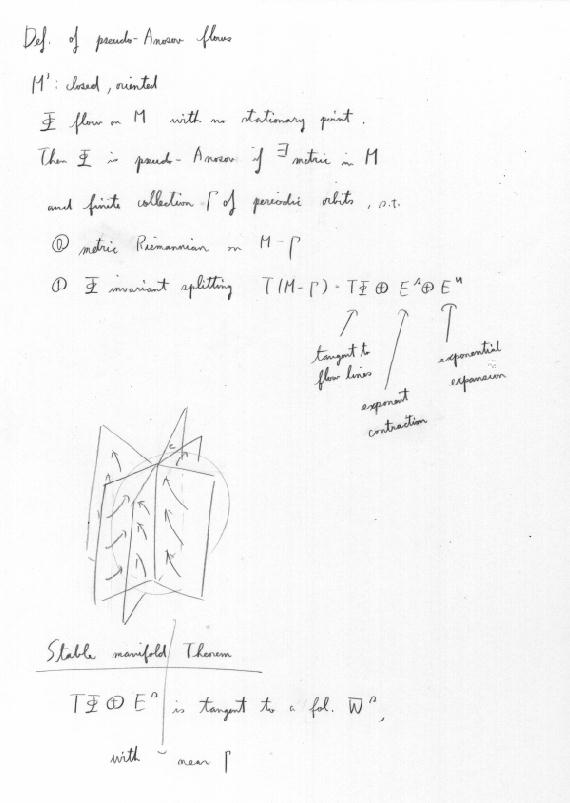 Def. of pseudo-Anosov flows
M³: closed, oriented
Φ flow on M with no stationary point.
Then Φ is pseudo-Anosov if ∃ metric in M
and finite collection Γ of periodic orbits, s.t.
⓪ metric Riemannian on M-Γ
① Φ invariant splitting T(M-Γ) = TΦ ⊕ Eˢ ⊕ Eᵘ
tangent to
flow lines
exponent
contraction
exponential
expansion
Stable manifold Theorem
TΦ ⊕ Eˢ is tangent to a fol. W̄ˢ,
with near Γ